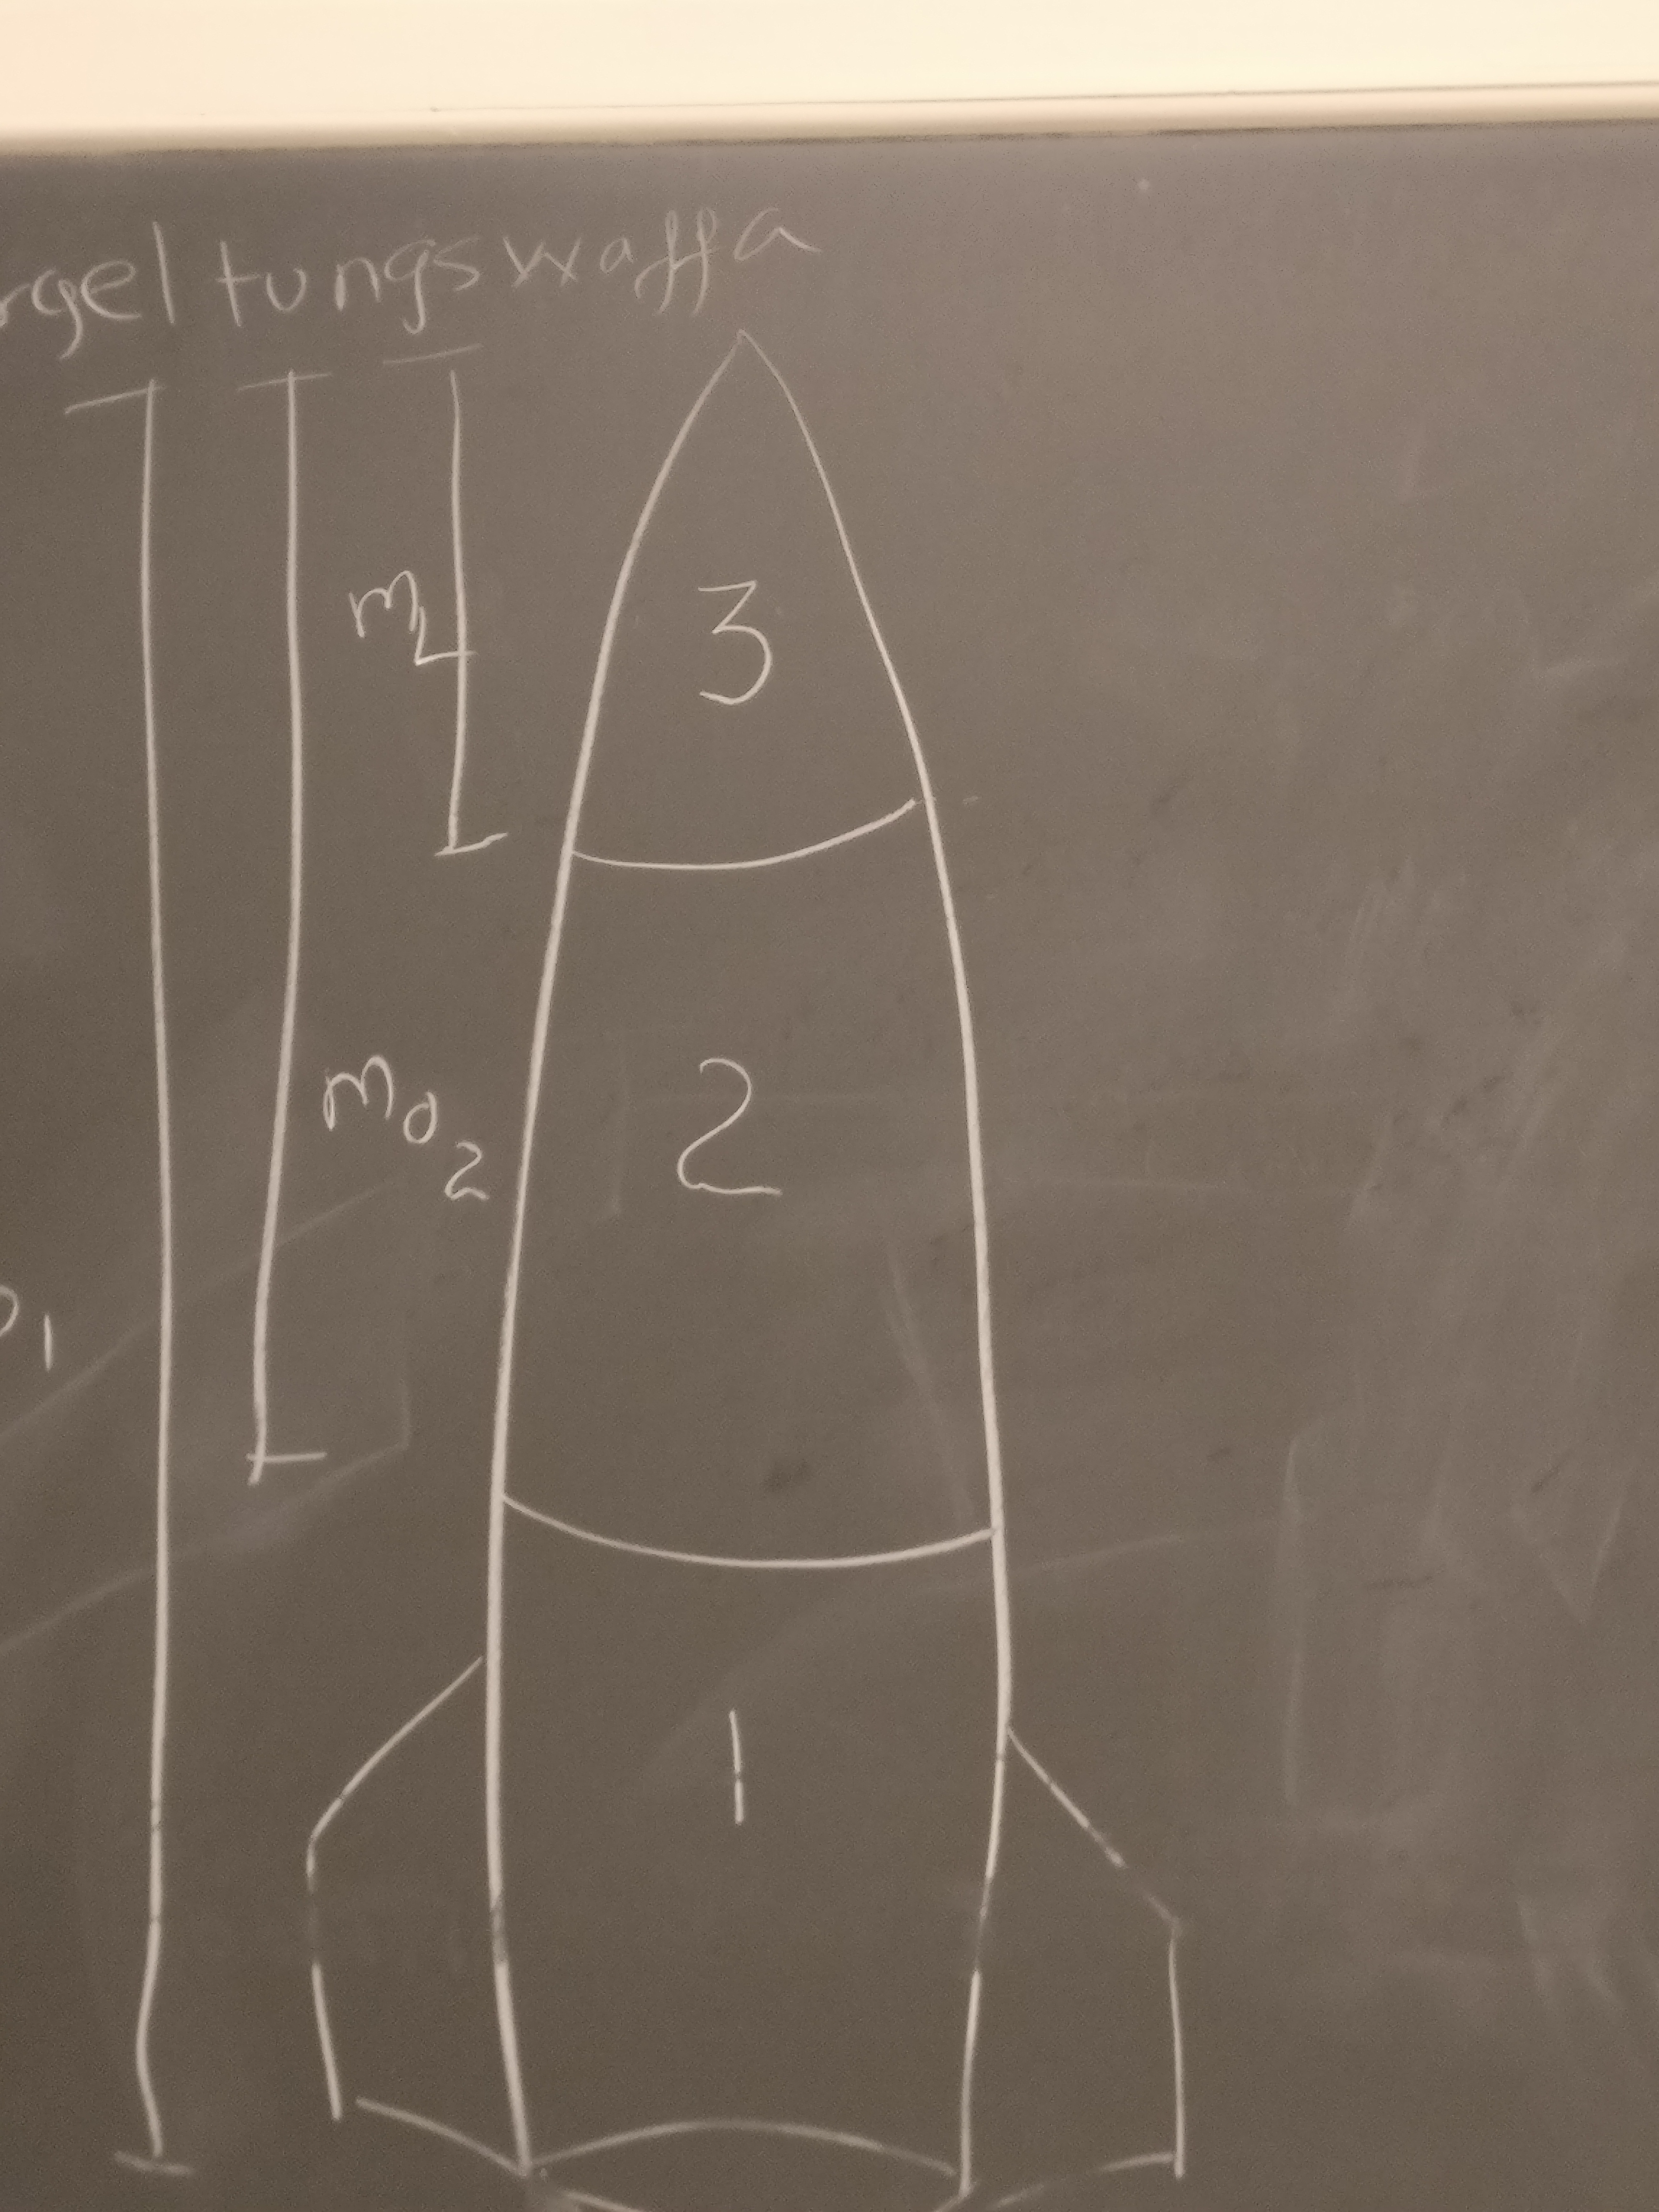 rgeltungswaffa
m_L
3
m_02
2
0_1
1